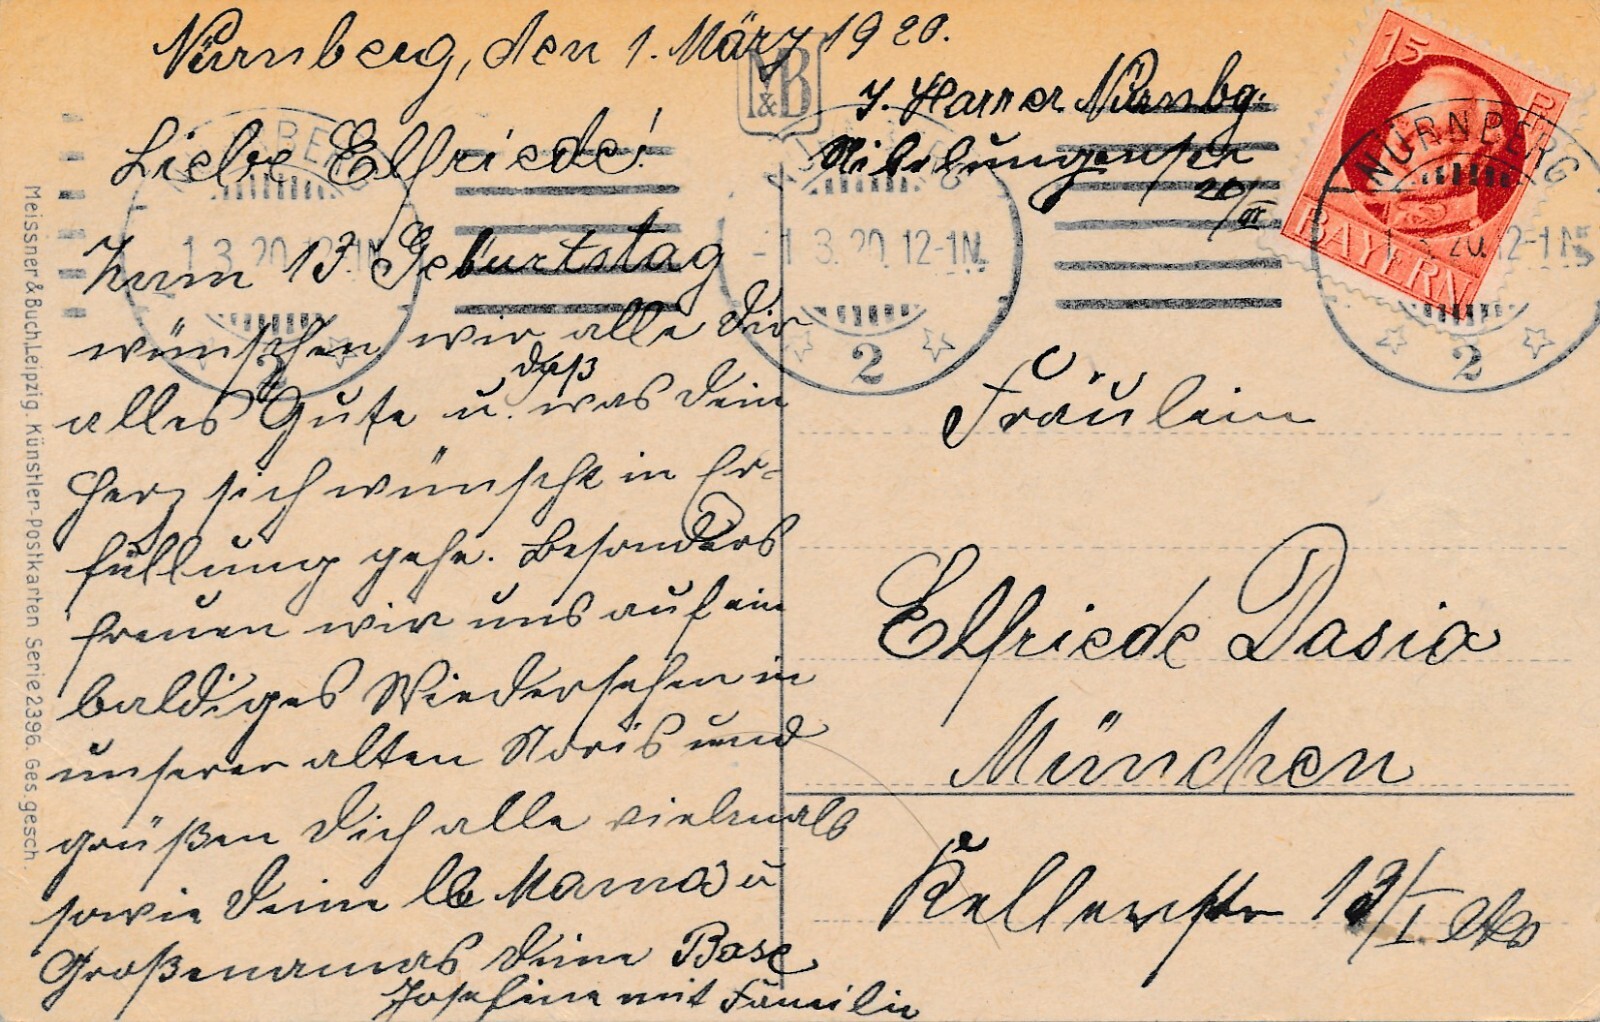 Nürnberg, den 1. März 1920.
Liebe Elfriede!
Zum 13. Geburtstag
wünschen wir alle Dir
alles Gute u. daß was Dein
Herz sich wünscht in Er-
füllung gehe. Besonders
freuen wir uns auf ein
baldiges Wiedersehen in
unserer alten Noris und
grüßen Dich alle vielmals
sowie Deine lb Mama u
Großmamas Deine Base
Josefine mit Familie
M&B
Nürnbg.
Nibelungenstr
20/III
Fräulein
Elfriede Dasio
München
Kellerstr 13/I
15
BAYERN
NÜRNBERG
1.3.20.12-1N.
2
NÜRNBERG
1.3.20.12-1N.
2
1.3.20.12-1N
2
Meissner & Buch, Leipzig. Künstler-Postkarten Serie 2396. Ges. gesch.